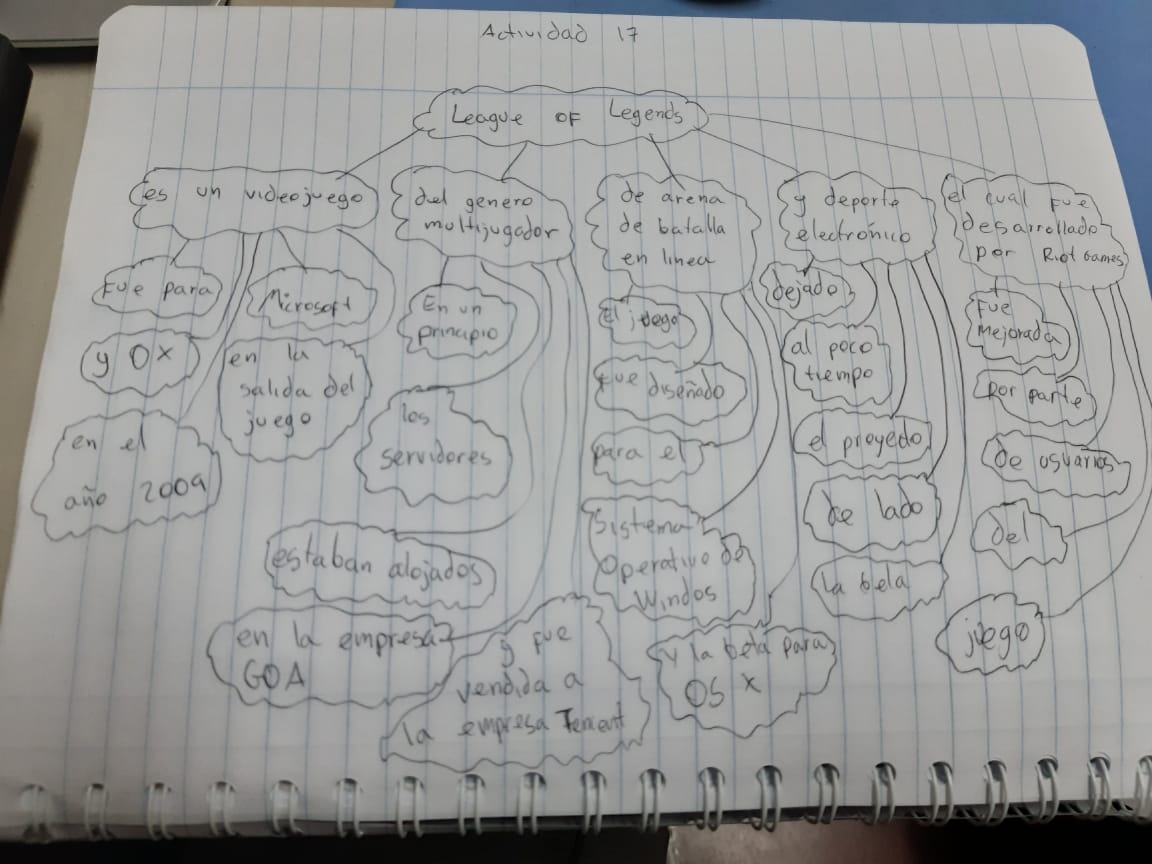 Actividad 17
League OF Legends
es un videojuego
Fue para
Microsoft
y OX
en la
salida del
juego
en el
año 2009
del genero
multijugador
En un
principio
los
servidores
estaban alojados
en la empresa
GOA
y fue
vendida a
la empresa Tencent
de arena
de batalla
en linea
El juego
fue diseñado
para el
Sistema
Operativo de
Windos
y la beta para
OS X
y deporte
electrónico
dejado
al poco
tiempo
el proyedo
de lado
la beta
el cual fue
desarrollado
por Riot Games
Fue
Mejorada
Por parte
de usuarios
del
juego